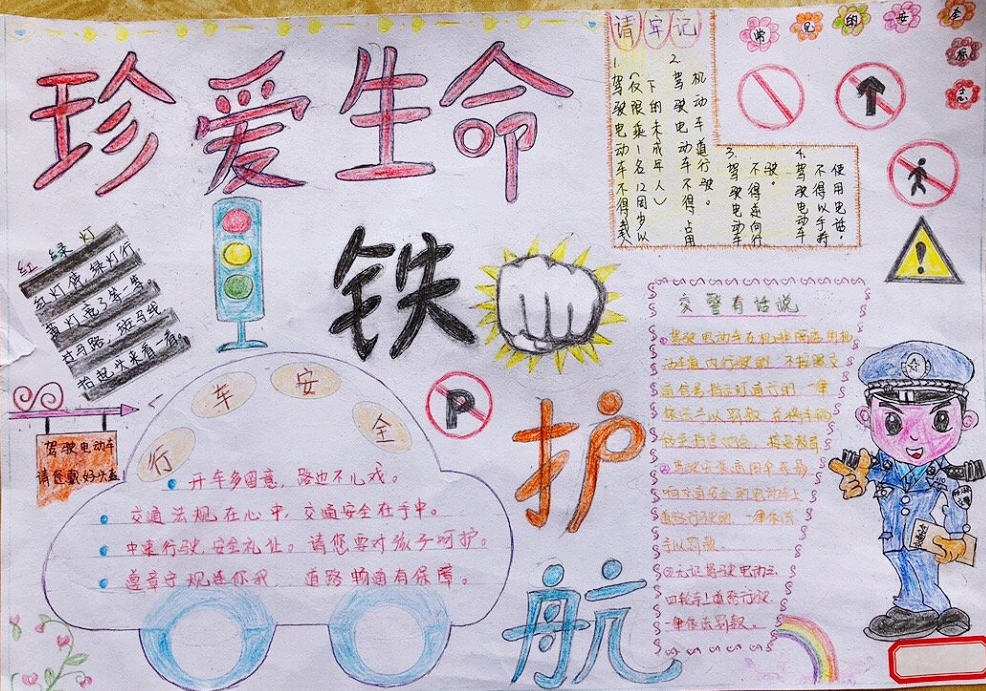 珍爱生命
铁
护
航
请牢记
1.
驾驶电动车不得载人
(仅限乘1名12周岁以
下的未成年人)
2.
驾驶电动车不得占用
机动车道行驶。
3.
驾驶电动车
不得逆向行
驶。
4.
驾驶电动车
不得以手持
使用电话。
常见的安全
标志
红绿灯
红灯停,绿灯行,
黄灯亮了等一等,
过马路,斑马线,
抬起头来看一看。
驾驶电动车
请您戴好头盔
行车安全
开车多留意,路边不儿戏。
交通法规在心中,交通安全在手中。
中速行驶,安全礼让。请您要对孩子呵护。
遵章守规连你我 道路畅通有保障。
P
交警有话说
①驾驶电动车在机非隔离
动车道内行驶的,不按照交
通信号指示灯通行的一律
依法予以罚款
交通安全
道路行驶的,一律依法
予以罚款。
③无证驾驶电动三
四轮车上道路行驶
一律依法罚款。